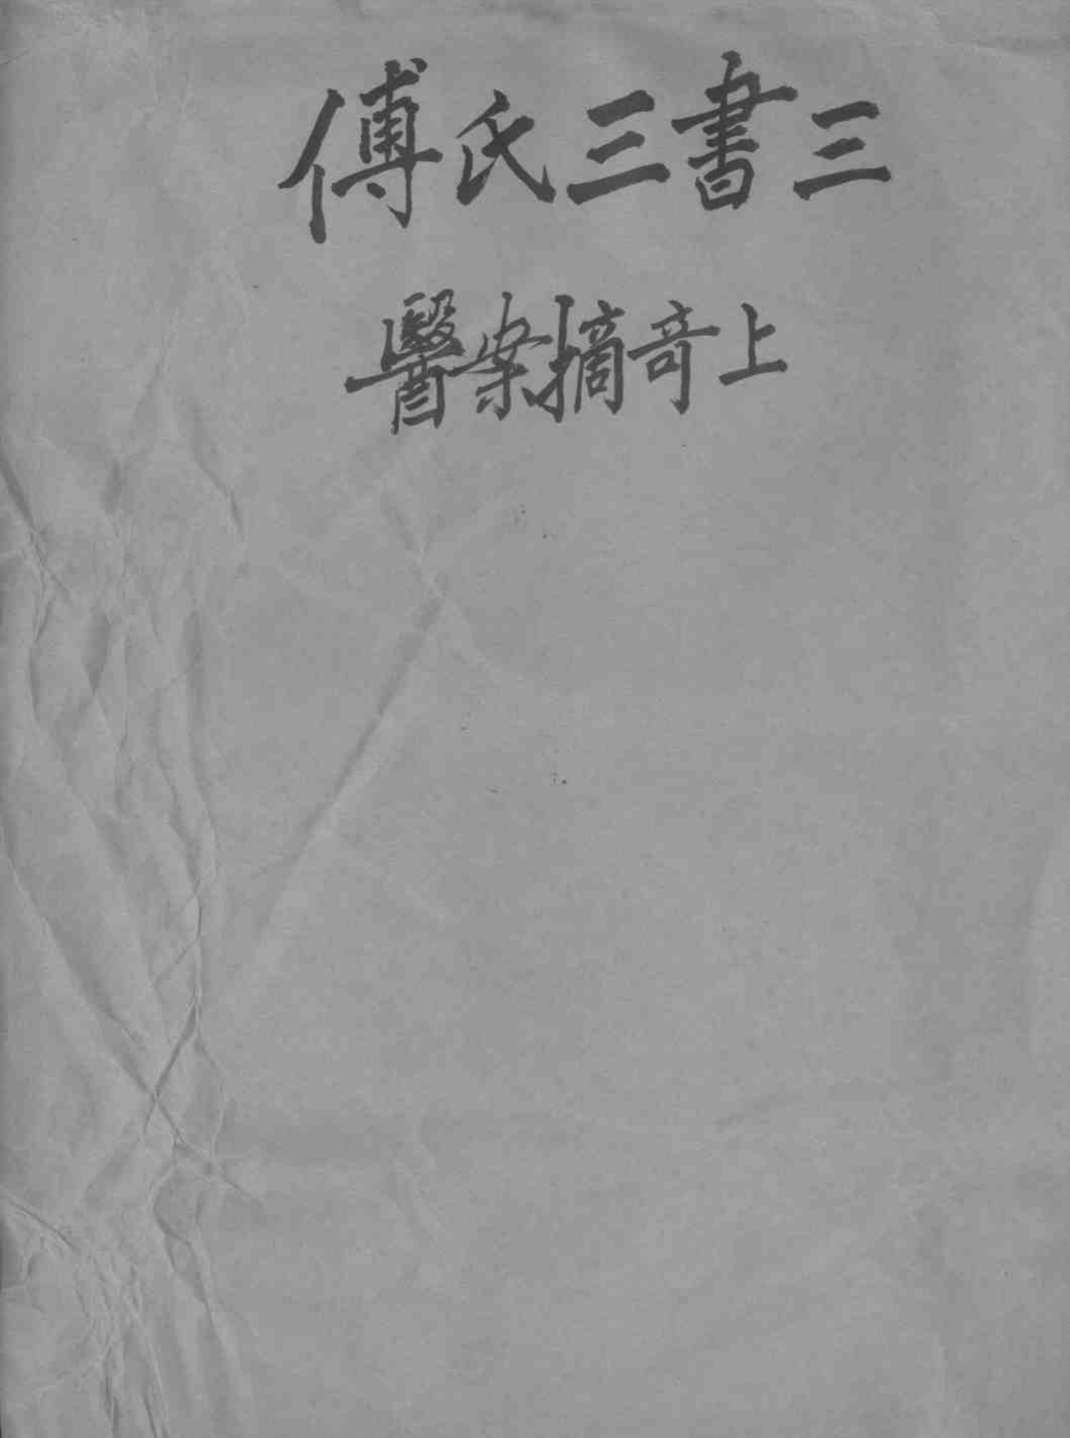 傅氏三書三
醫案摘奇上